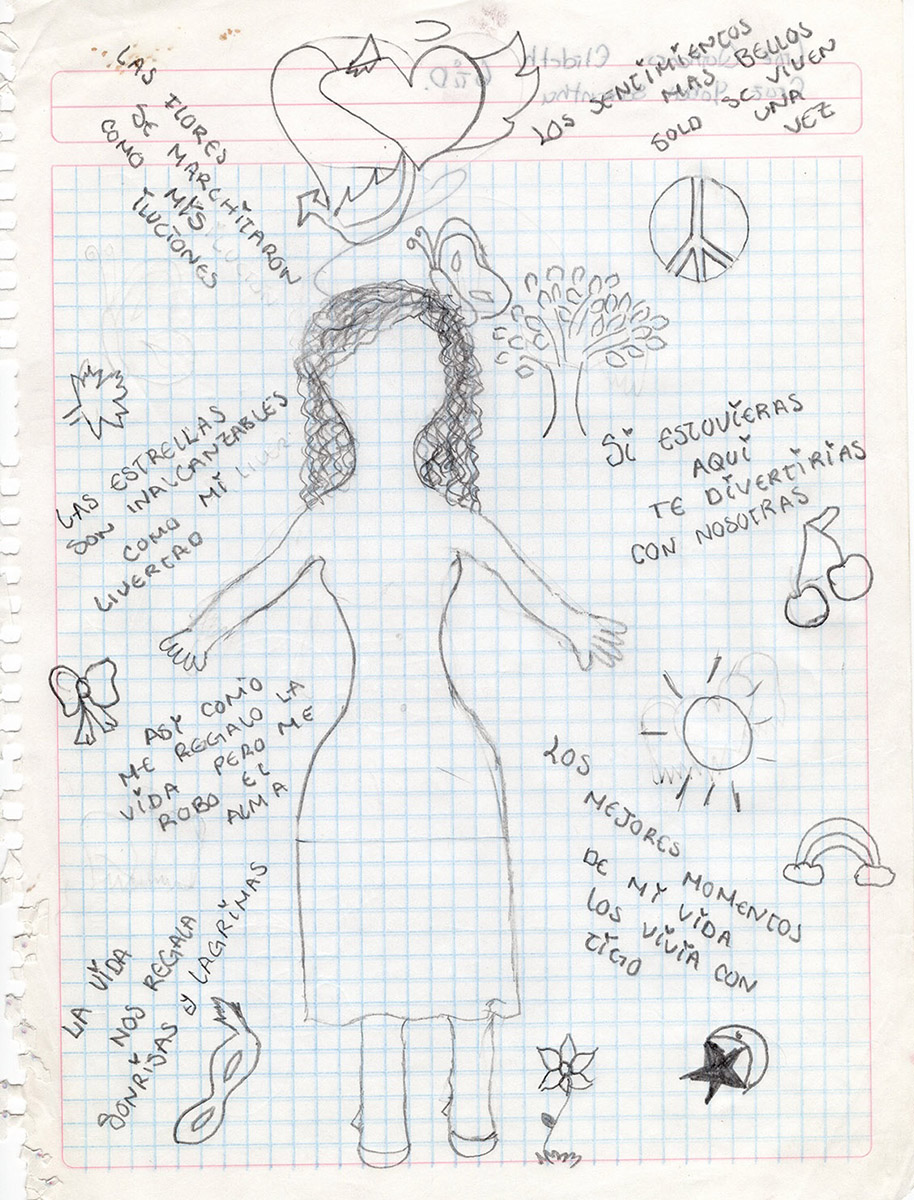 LAS FLORES
SE MARCHITARON
COMO MIS
ILUCIONES
LOS SENTIMIENTOS
MAS BELLOS
SOLO SE VIVEN
UNA
VEZ
LAS ESTRELLAS
SON INALCANZABLES
COMO MI
LIVERTAD
SI ESTUVIERAS
AQUI
TE DIVERTIRIAS
CON NOSOTRAS
ASY COMO
ME REGALO LA
VIDA PERO ME
ROBO EL
ALMA
LOS
MEJORES
MOMENTOS
DE MI VIDA
LOS VIVIA CON
TIGO
LA VIDA
NOS REGALA
SONRIJAS Y LAGRIMAS